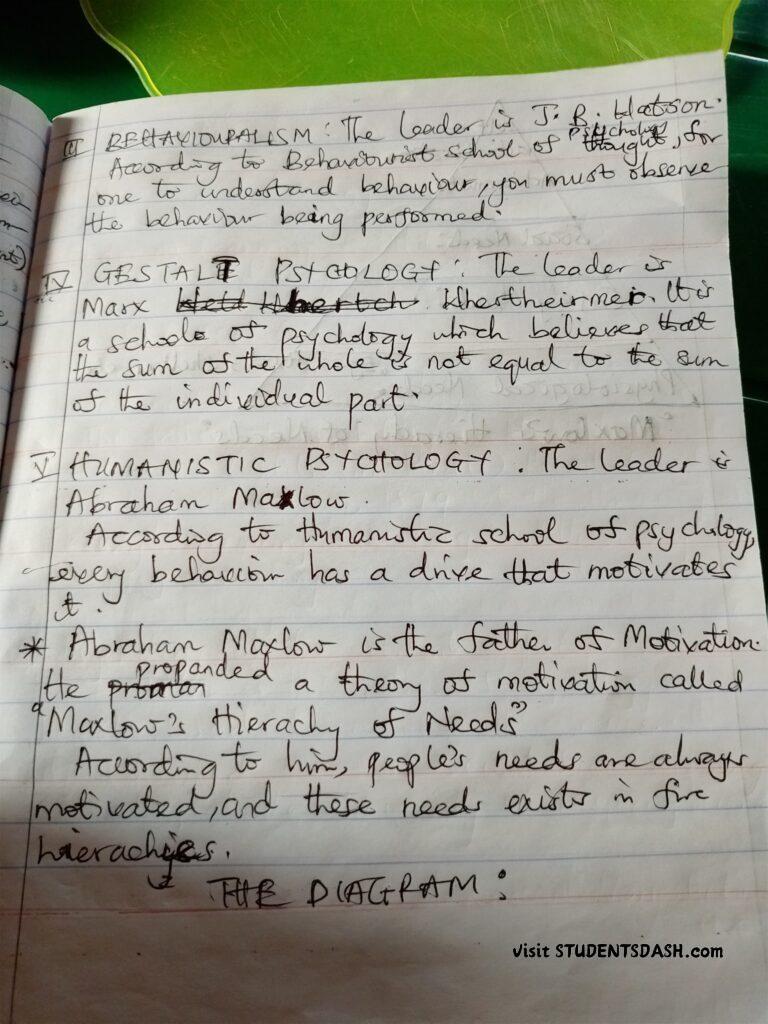 III BEHAVIOURALISM: The leader is J. B. Watson.
According to Behaviourist school of psychology thought, for
one to understand behaviour, you must observe
the behaviour being performed.
IV GESTALT PSYCOLOGY: The leader is
Marx Whertheirmer. It is
a school of psychology which believes that
the sum of the whole is not equal to the sum
of the individual part.
V HUMANISTIC PSYCHOLOGY: The leader is
Abraham Maxlow.
According to Humanistic school of psychology,
every behaviour has a drive that motivates
it.
* Abraham Maxlow is the father of Motivation.
He propanded a theory of motivation called
"Maxlow's Hierachy of Needs"
According to him, people's needs are always
motivated, and these needs exists in five
hierachies.
THE DIAGRAM:
visit STUDENTSDASH.com